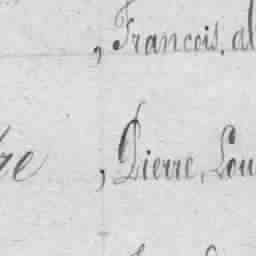 , François, al
re , Pierre, Lou